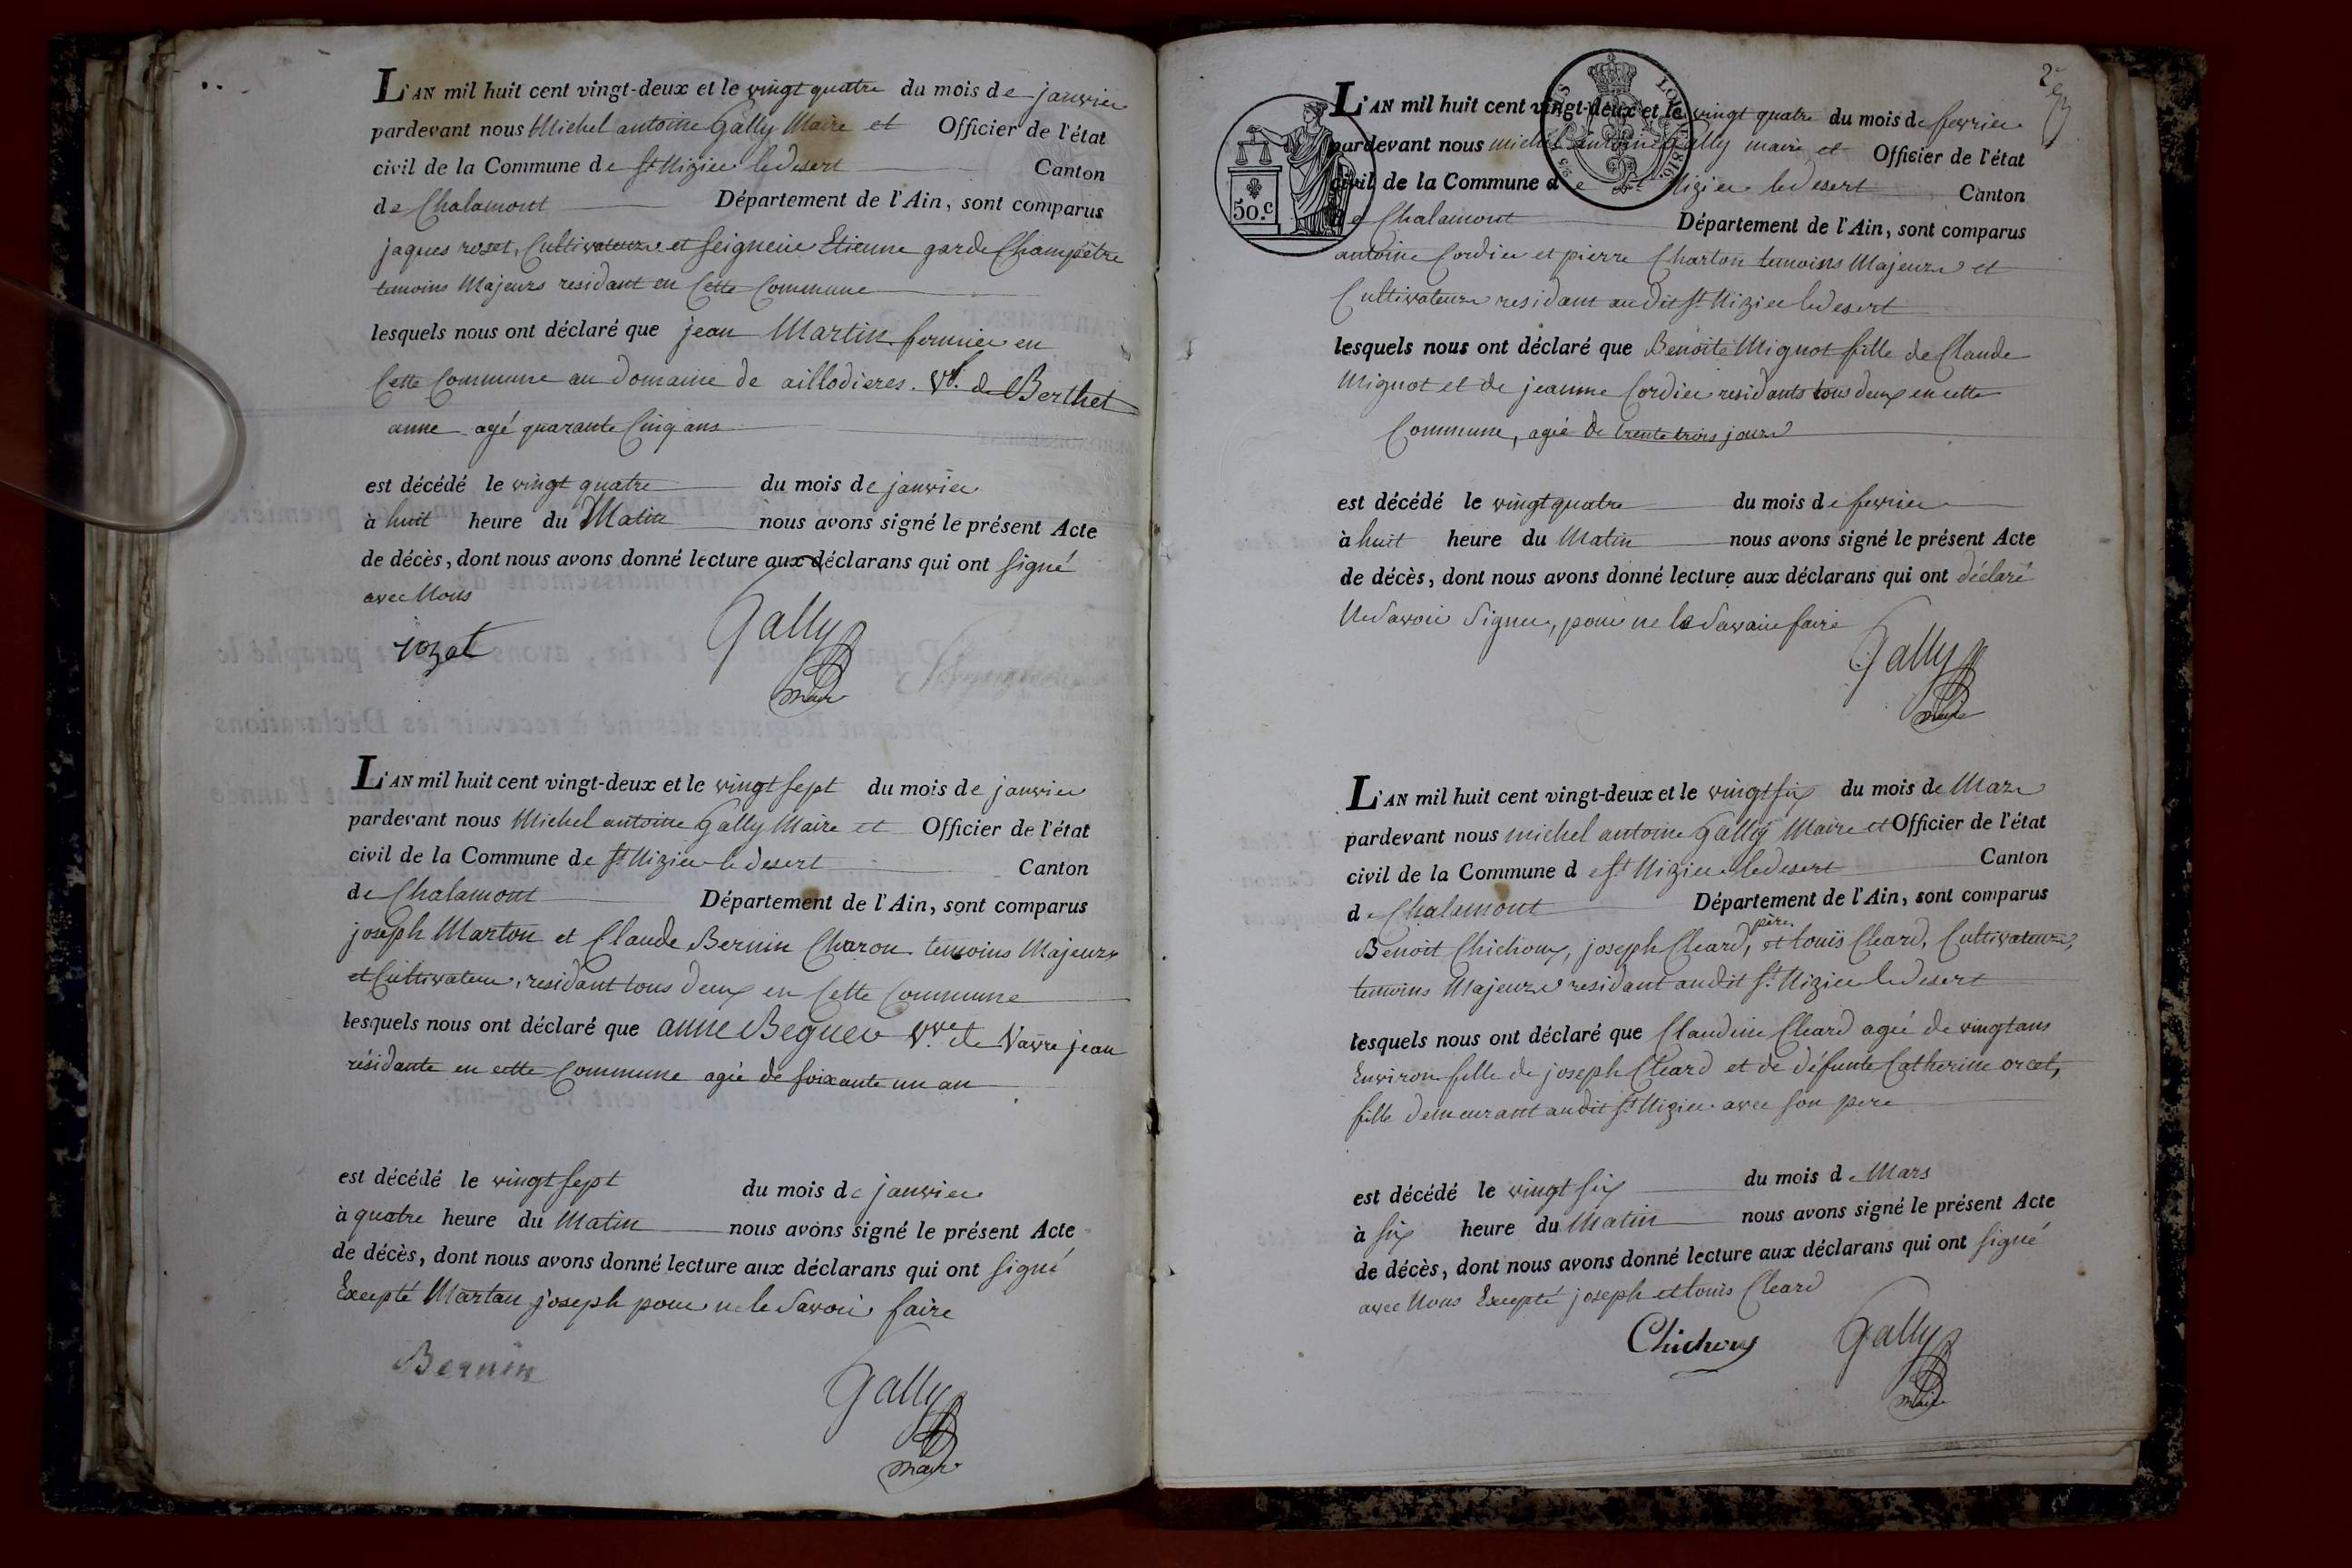 L'AN mil huit cent vingt-deux et le vingt quatre du mois de janvier
pardevant nous Michel antoine Gally Maire et Officier de l'état
civil de la Commune de St Nizier le desert Canton
de Chalamont Département de l'Ain, sont comparus
jaques roset, Cultivateur et Seigneur Etienne garde Champêtre
temoins Majeurs residant en Cette Commune
lesquels nous ont déclaré que jean Martin fermier en
Cette Commune au Domaine de aillodieres. Vf. de Berthet
anne agé quarante Cinq ans
est décédé le vingt quatre du mois de janvier
à huit heure du Matin nous avons signé le présent Acte
de décès, dont nous avons donné lecture aux déclarans qui ont signé
avec Nous
rozet Gally
maire
L'AN mil huit cent vingt-deux et le vingt sept du mois de janvier
pardevant nous Michel antoine Gally Maire et Officier de l'état
civil de la Commune de St Nizier le desert Canton
de Chalamont Département de l'Ain, sont comparus
joseph Marton et Claude Bernin Charon temoins Majeurs
et Cultivateur, residant tous deux en Cette Commune
lesquels nous ont déclaré que anne Beguer Vve de Navre jean
résidante en cette Commune agée de soixante un an
est décédé le vingt sept du mois de janvier
à quatre heure du Matin nous avons signé le présent Acte
de décès, dont nous avons donné lecture aux déclarans qui ont signé
Excepté Martan joseph pour ne le Savoir faire
Bernin Gally
maire
2e
L'AN mil huit cent vingt-deux et le vingt quatre du mois de fevrier
pardevant nous michel antoine Gally maire et Officier de l'état
civil de la Commune de St Nizier le desert Canton
50.c
de Chalamont Département de l'Ain, sont comparus
antoine Cordier et pierre Charton temoins Majeurs et
Cultivateurs residant au dit St Nizier le desert
lesquels nous ont déclaré que Benoite Mignot fille de Claude
Mignot et de jeanne Cordier residants tous deux en cette
Commune, agée de trente trois jours
est décédé le vingt quatre du mois de fevrier
à huit heure du Matin nous avons signé le présent Acte
de décès, dont nous avons donné lecture aux déclarans qui ont déclaré
Ne Savoir Signer, pour ne le Savoir faire
Gally
maire
L'AN mil huit cent vingt-deux et le vingt six du mois de Mars
pardevant nous michel antoine Gally Maire et Officier de l'état
civil de la Commune de St Nizier le desert Canton
de Chalamont Département de l'Ain, sont comparus
Benoit Chichoux, joseph Cleard, père, et louis Cleard, Cultivateurs,
temoins Majeurs residant audit St Nizier le desert
lesquels nous ont déclaré que Claudine Cleard agée de vingt ans
Environ fille de joseph Cleard et de défunte Catherine orcet,
fille demeurant audit St Nizier avec son pere
est décédé le vingt six du mois de Mars
à six heure du Matin nous avons signé le présent Acte
de décès, dont nous avons donné lecture aux déclarans qui ont signé
avec Nous Excepté joseph et louis Cleard
Chichoux Gally
maire